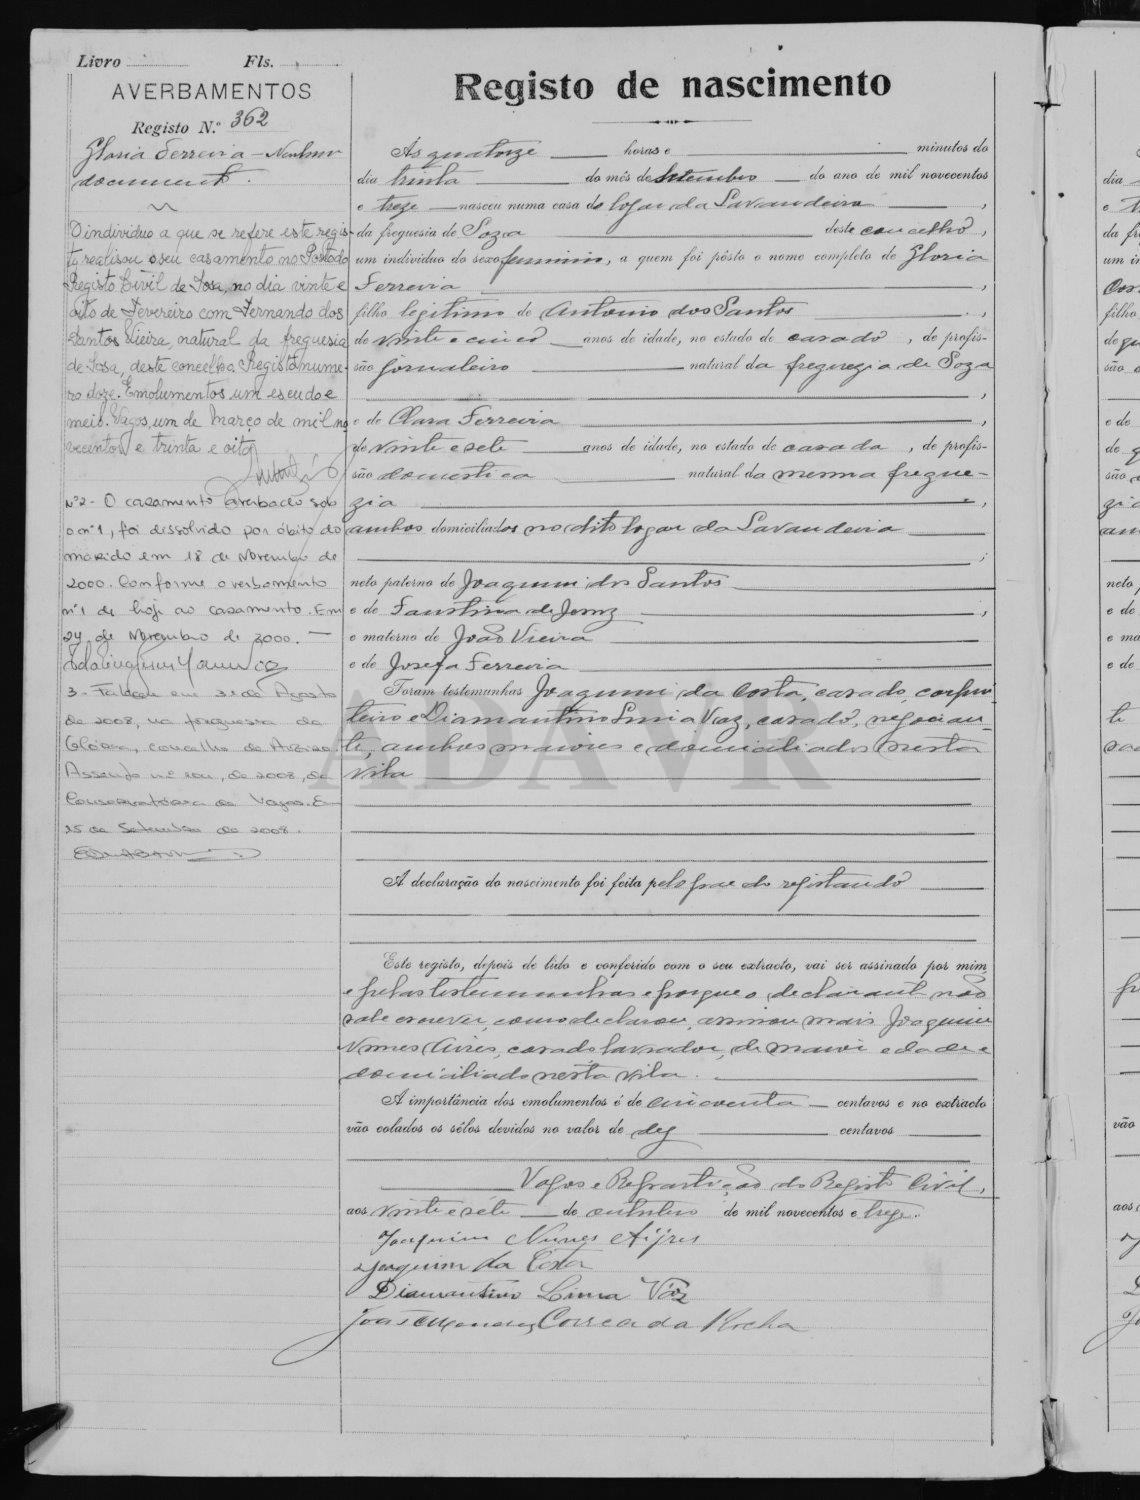 Livro Fls.
AVERBAMENTOS
Registo N.º 362
Gloria Ferreira - Nenhum
documento.
O individuo a que se refere este regis-
to realisou o seu casamento no Posto do
Registo Civil de Sosa, no dia vinte e
oito de Fevereiro com Fernando dos
Santos Vieira, natural da freguesia
de Sosa, deste concelho. Registo nume-
ro doze. Emolumentos um escudo e
meio. Vagos, um de Março de mil no
vecentos e trinta e oito
Nº2 - O casamento averbado sob
o nº1, foi dissolvido por óbito do
marido em 18 de Novembro de
2000. Conforme averbamento
nº1 de hoje ao casamento. Em
24 de Novembro de 2000. —
3 - Faleceu em 31 de Agosto
de 2008, na freguesia da
Glória, concelho de Aveiro.
Assento nº de 2008, da
Conservatória de Vagos. Em
15 de Setembro de 2008.
Registo de nascimento
Ás quatorze horas e minutos do
dia trinta do mês de Setembro do ano de mil novecentos
e treze nasceu numa casa do logar da Lavandeira,
da freguesia de Soza deste concelho,
um individuo do sexo feminino, a quem foi pôsto o nome completo de Gloria
Ferreira,
filho legitimo de Antonio dos Santos,
de vinte e cinco anos de idade, no estado de casado, de profis-
são jornaleiro natural da freguezia de Soza
,
e de Clara Ferreira
de vinte e sete anos de idade, no estado de casada, de profis-
são domestica natural da mesma fregue-
zia,
ambos domiciliados no dito logar da Lavandeira
;
neto paterno de Joaquim dos Santos
e de Faustina de Jesuz,
e materno de João Vieira
e de Josefa Ferreira
Foram testemunhas Joaquim da Costa, casado, carpin-
teiro e Diamantino Lima Vaz, casado, negocian-
te, ambos maiores e domiciliados nesta
vila
ADAVR
A declaração do nascimento foi feita pelo pae do registando
Este registo, depois de lido e conferido com o seu extracto, vai ser assinado por mim
e pelas testemunhas e porque o declarante não
sabe escrever, como declarou, assinou mais Joaquim
Nunes Aires, casado lavrador, de maior edade e
domiciliado nesta vila.
A importância dos emolumentos é de cincoenta centavos e no extracto
vão colados os sêlos devidos no valor de dez centavos
Vagos e Repartição do Registo Civil,
aos vinte e sete de outubro de mil novecentos e treze.
Joaquim Nunes Aijres
Joaquim da Costa
Diamantino Lima Váz
João Correa da Rocha